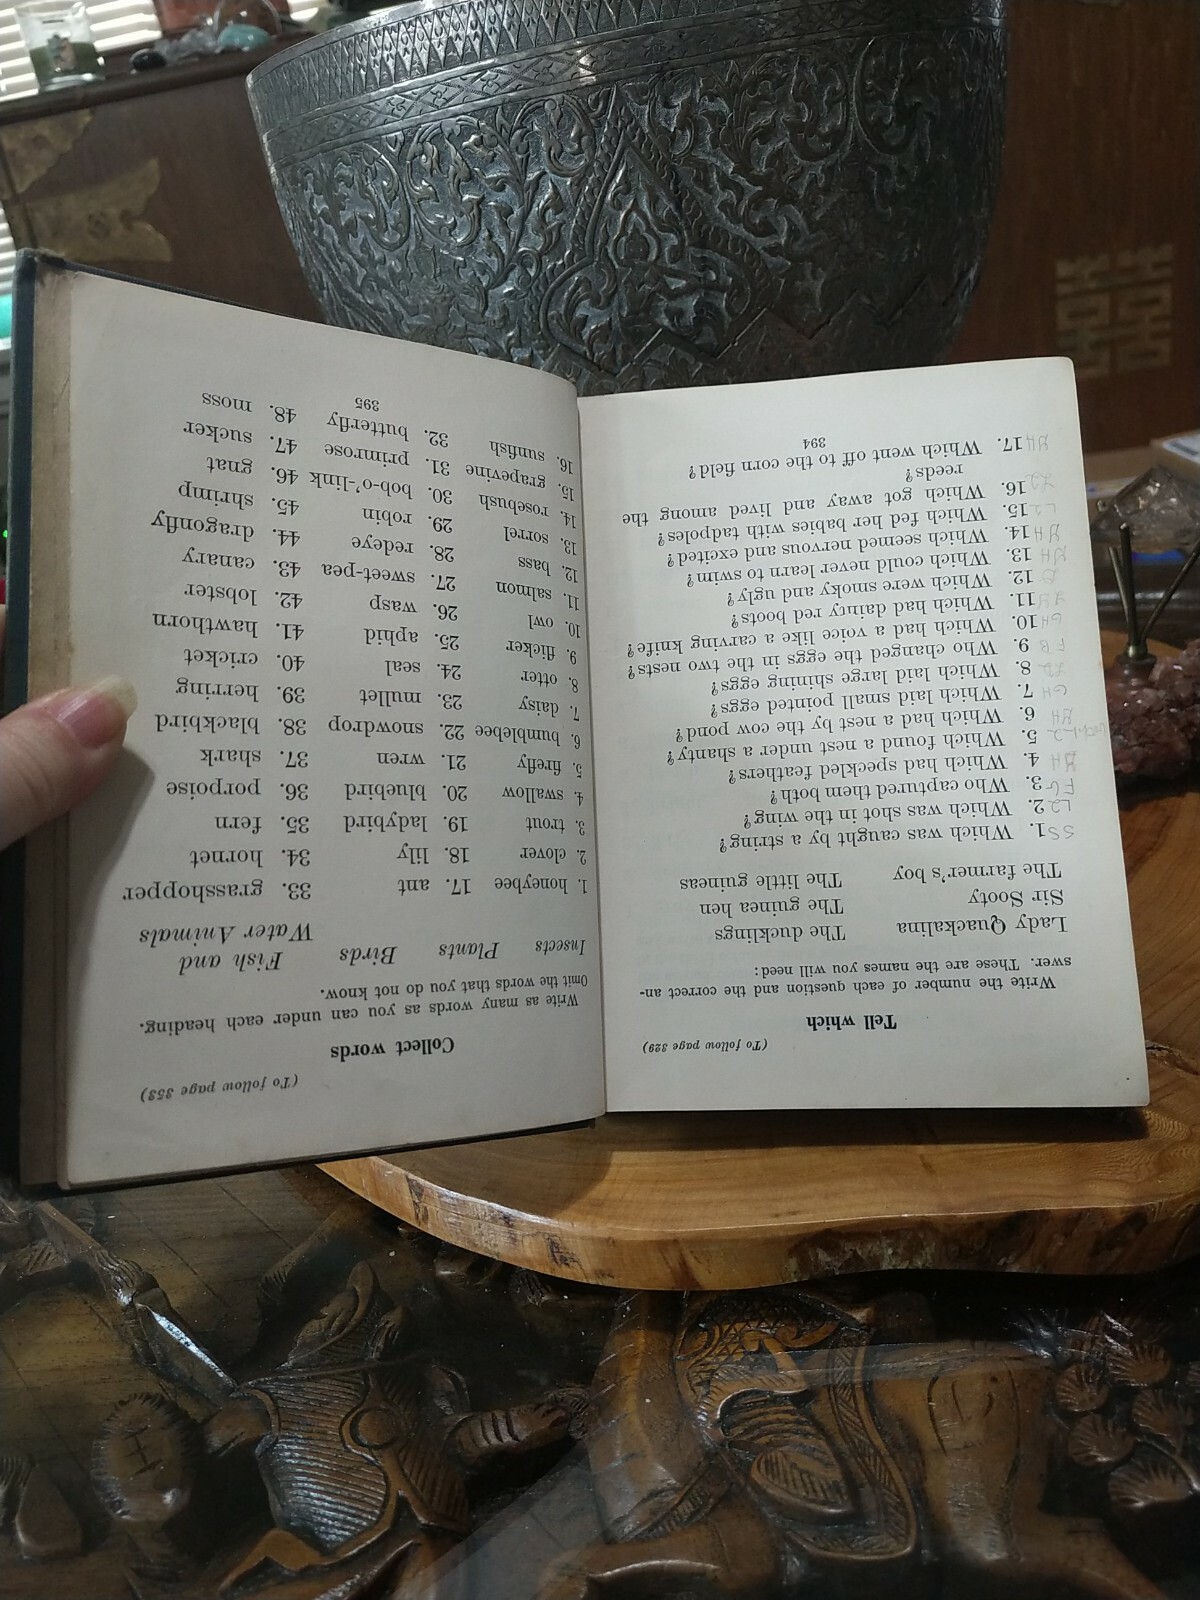 (To follow page 329)
Tell which
Write the number of each question and the correct an-
swer. These are the names you will need:
Lady Quackalina The ducklings
Sir Sooty The guinea hen
The farmer's boy The little guineas
SS 1. Which was caught by a string?
L2 2. Which was shot in the wing?
FG 3. Who captured them both?
4. Which had speckled feathers?
5. Which found a nest under a shanty?
6. Which had a nest by the cow pond?
GH 7. Which laid small pointed eggs?
8. Which laid large shining eggs?
FB 9. Who changed the eggs in the two nests?
GH 10. Which had a voice like a carving knife?
11. Which had dainty red boots?
12. Which were smoky and ugly?
13. Which could never learn to swim?
14. Which seemed nervous and excited?
15. Which fed her babies with tadpoles?
16. Which got away and lived among the
reeds?
17. Which went off to the corn field?
394
(To follow page 353)
Collect words
Write as many words as you can under each heading.
Omit the words that you do not know.
Insects Plants Birds Fish and
Water Animals
1. honeybee 17. ant 33. grasshopper
2. clover 18. lily 34. hornet
3. trout 19. ladybird 35. fern
4. swallow 20. bluebird 36. porpoise
5. firefly 21. wren 37. shark
6. bumblebee 22. snowdrop 38. blackbird
7. daisy 23. mullet 39. herring
8. otter 24. seal 40. cricket
9. flicker 25. aphid 41. hawthorn
10. owl 26. wasp 42. lobster
11. salmon 27. sweet-pea 43. canary
12. bass 28. redeye 44. dragonfly
13. sorrel 29. robin 45. shrimp
14. rosebush 30. bob-o'-link 46. gnat
15. grapevine 31. primrose 47. sucker
16. sunfish 32. butterfly 48. moss
395
囍